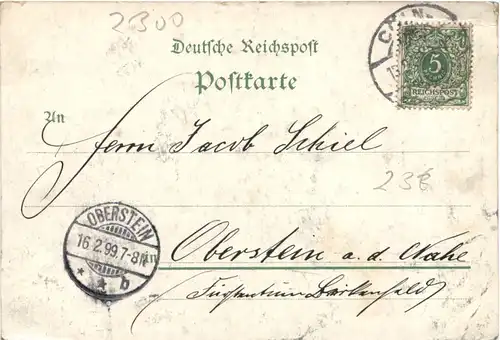 2300
Deutsche Reichspost
Postkarte
5
REICHSPOST
An
Herrn Jacob Schiel
238
OBERSTEIN
16.2.99.7-8N
* * b
in Oberstein a. d. Nahe
Fürstentum Birkenfeld